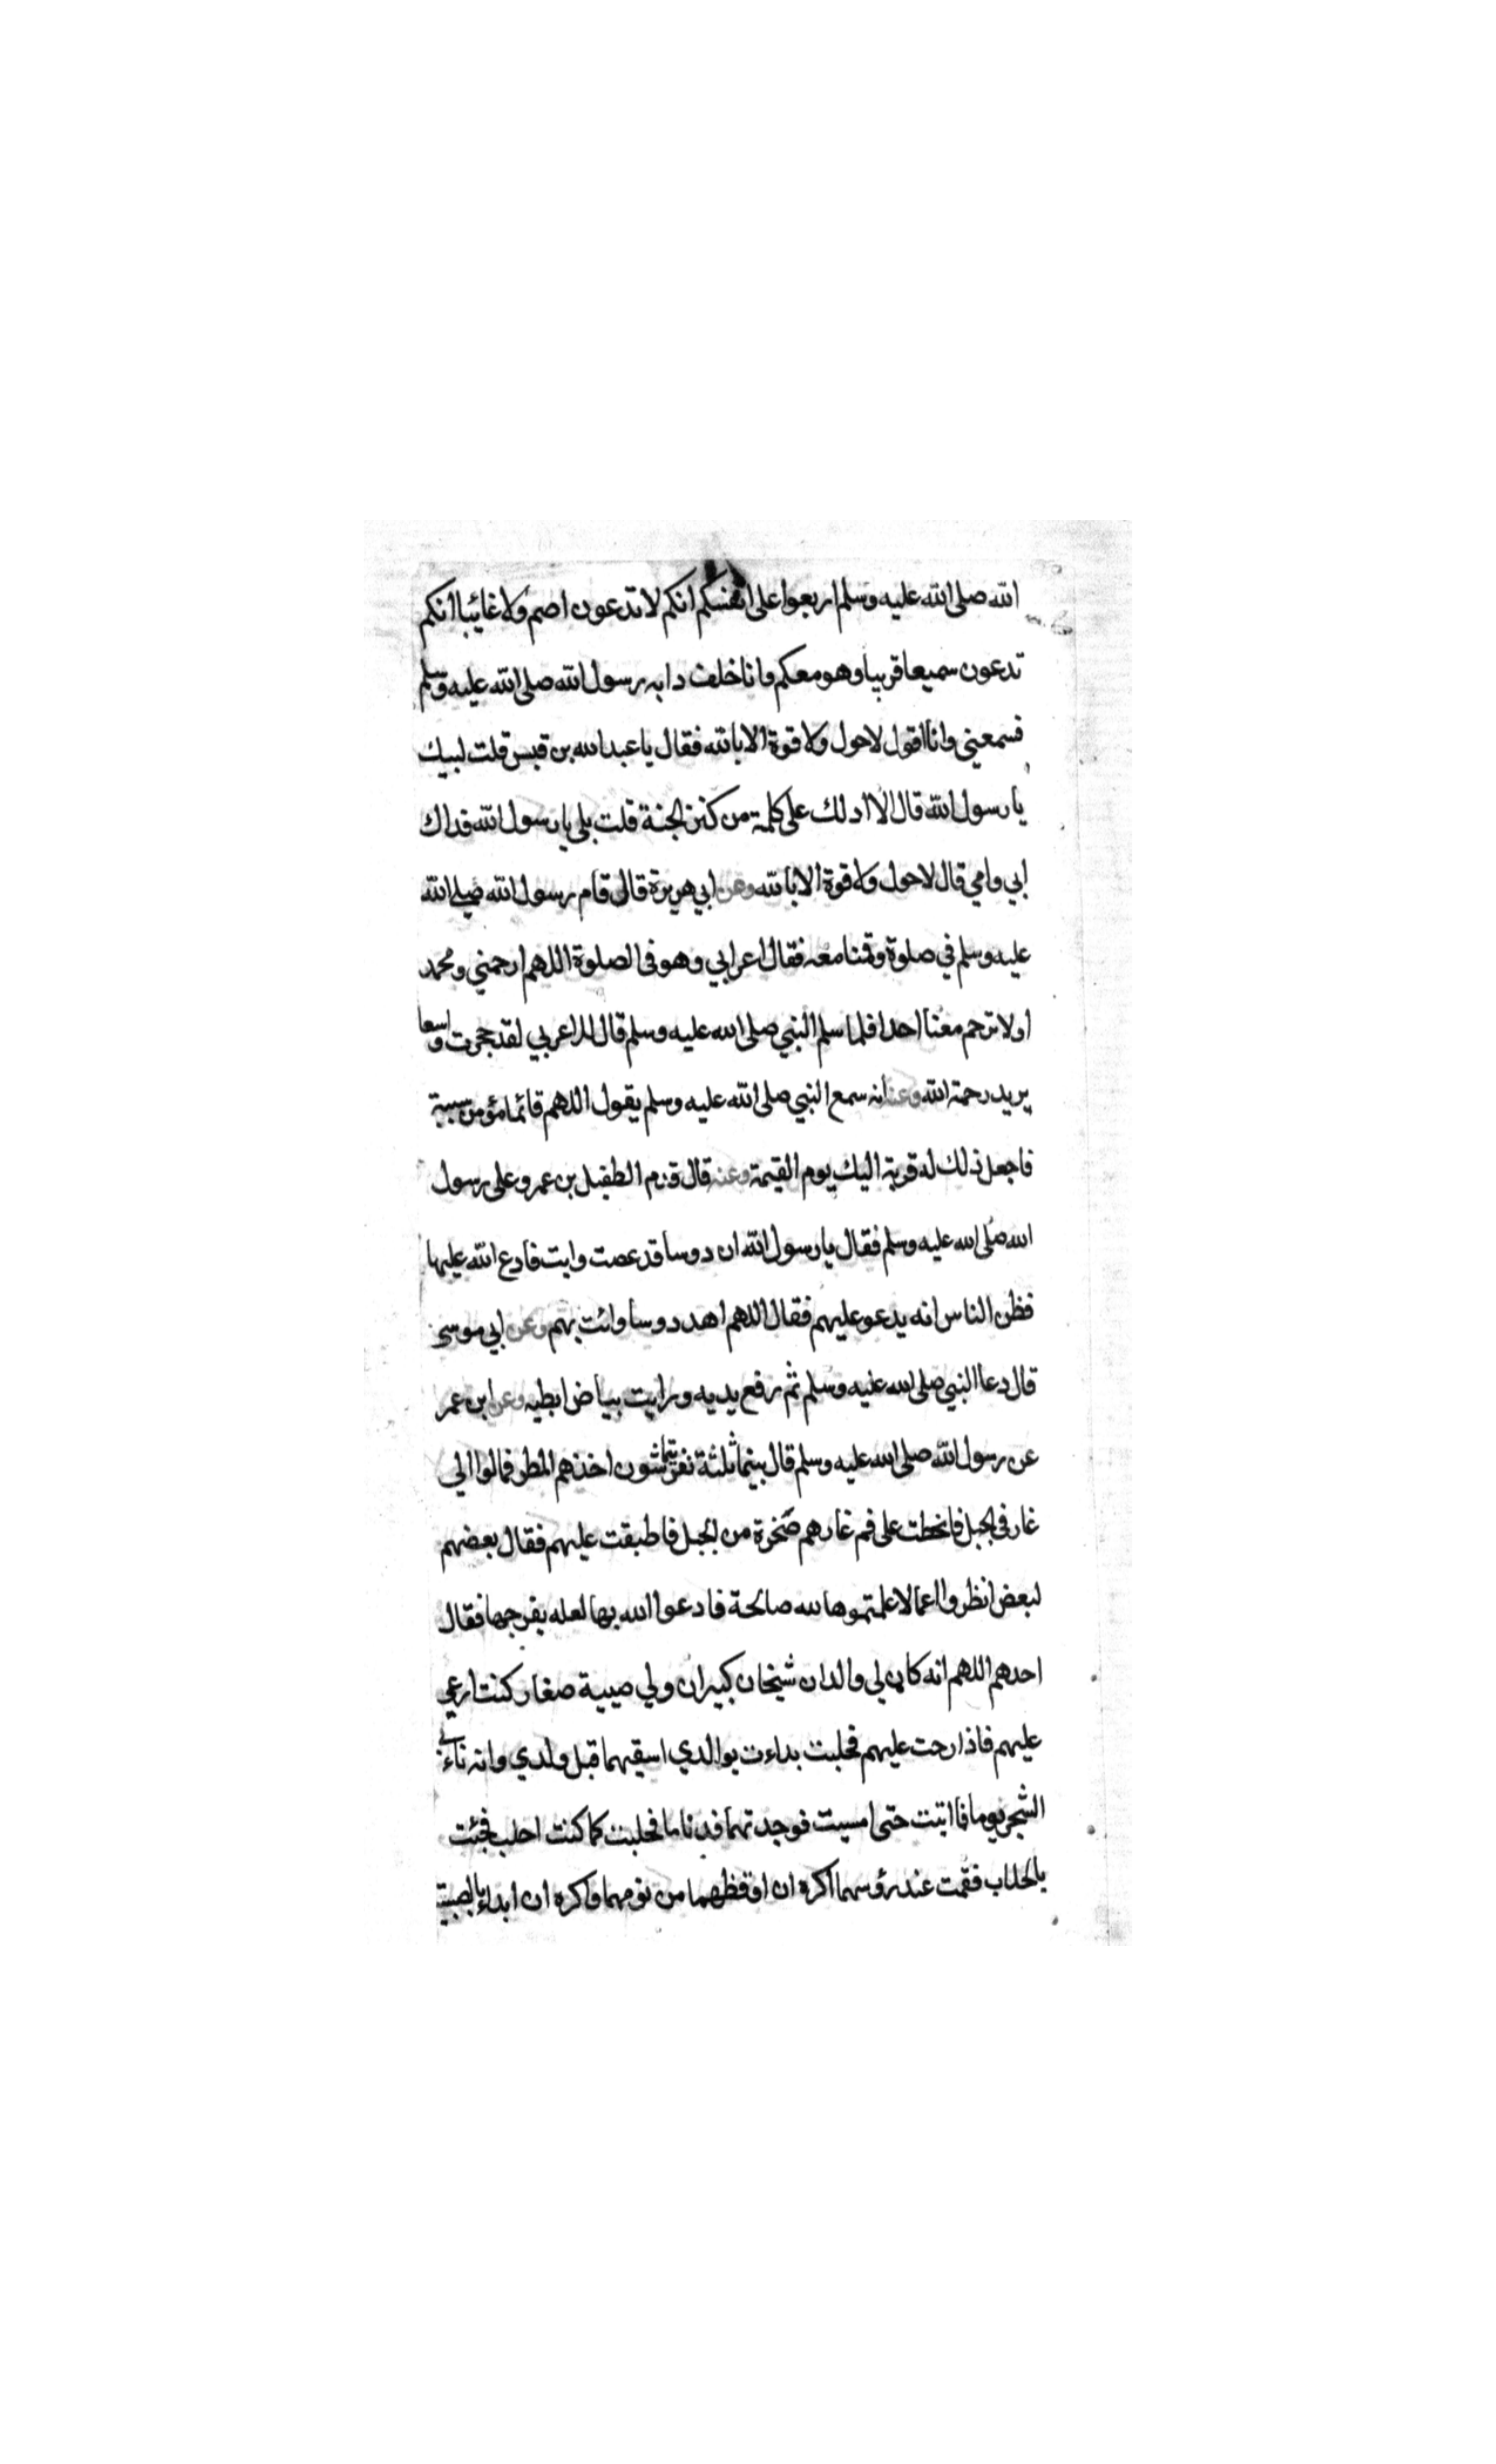 الله صلى الله عليه وسلم اربعوا على انفسكم انكم لا تدعون اصم ولا غائبا انكم
تدعون سميعا قريبا وهو معكم وانا خلف دابه رسول الله صلى الله عليه وسلم
فسمعني وانا اقول لا حول ولا قوة الا بالله فقال يا عبد الله بن قيس قلت لبيك
يا رسول الله قال الا ادلك على كلمة من كنز الجنة قلت بلى يا رسول الله فداك
ابي وامي قال لا حول ولا قوة الا بالله وعن ابي هريرة قال قام رسول الله صلى الله
عليه وسلم في صلوة وقمنا معه فقال اعرابي وهو في الصلوة اللهم ارحمني ومحمد
اولا ترحم معنا احدا فلما سلم النبي صلى الله عليه وسلم قال للاعربي لقد حجرت واسعا
يريد رحمة الله وعنه انه سمع النبي صلى الله عليه وسلم يقول اللهم فائما مؤمن سببته
فاجعل ذلك له قربة اليك يوم القيمة وعنه قال قدم الطفيل بن عمرو على رسول
الله صلى الله عليه وسلم فقال يا رسول الله ان دوسا قد عصت وابت فادع الله عليها
فظن الناس انه يدعو عليهم فقال اللهم اهد دوسا وائت بهم وعن ابي موسى
قال دعا النبي صلى الله عليه وسلم ثم رفع يديه ورايت بياض ابطيه وعن ابن عمر
عن رسول الله صلى الله عليه وسلم قال بينما ثلثة نفر يتماشون اخذهم المطر فمالوا الى
غار في الجبل فانحطت على فم غارهم صخرة من الجبل فاطبقت عليهم فقال بعضهم
لبعض انظروا اعمالا عملتموها لله صالحة فادعوا الله بها لعله يفرجها فقال
احدهم اللهم انه كان لي والدان شيخان كبيران ولي صبية صغار كنت ارعي
عليهم فاذا رحت عليهم فحلبت بداءت بوالدي اسقيهما قبل ولدي وانه ناءى بي
الشجر يوما فما اتيت حتى امسيت فوجدتهما قد ناما فحلبت كما كنت احلب فجئت
بالحلاب فقمت عند رؤسهما اكره ان اوقظهما من نومهما واكره ان ابداء بالصبية